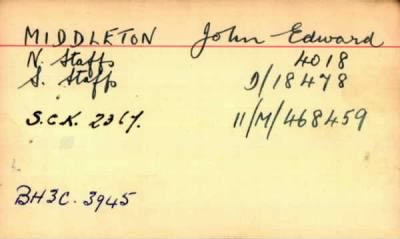 MIDDLETON John Edward
N. Staffs 4018
S. Staffs D/18478
S.C.K. 2367. 11/M/468459
BH3C. 3945